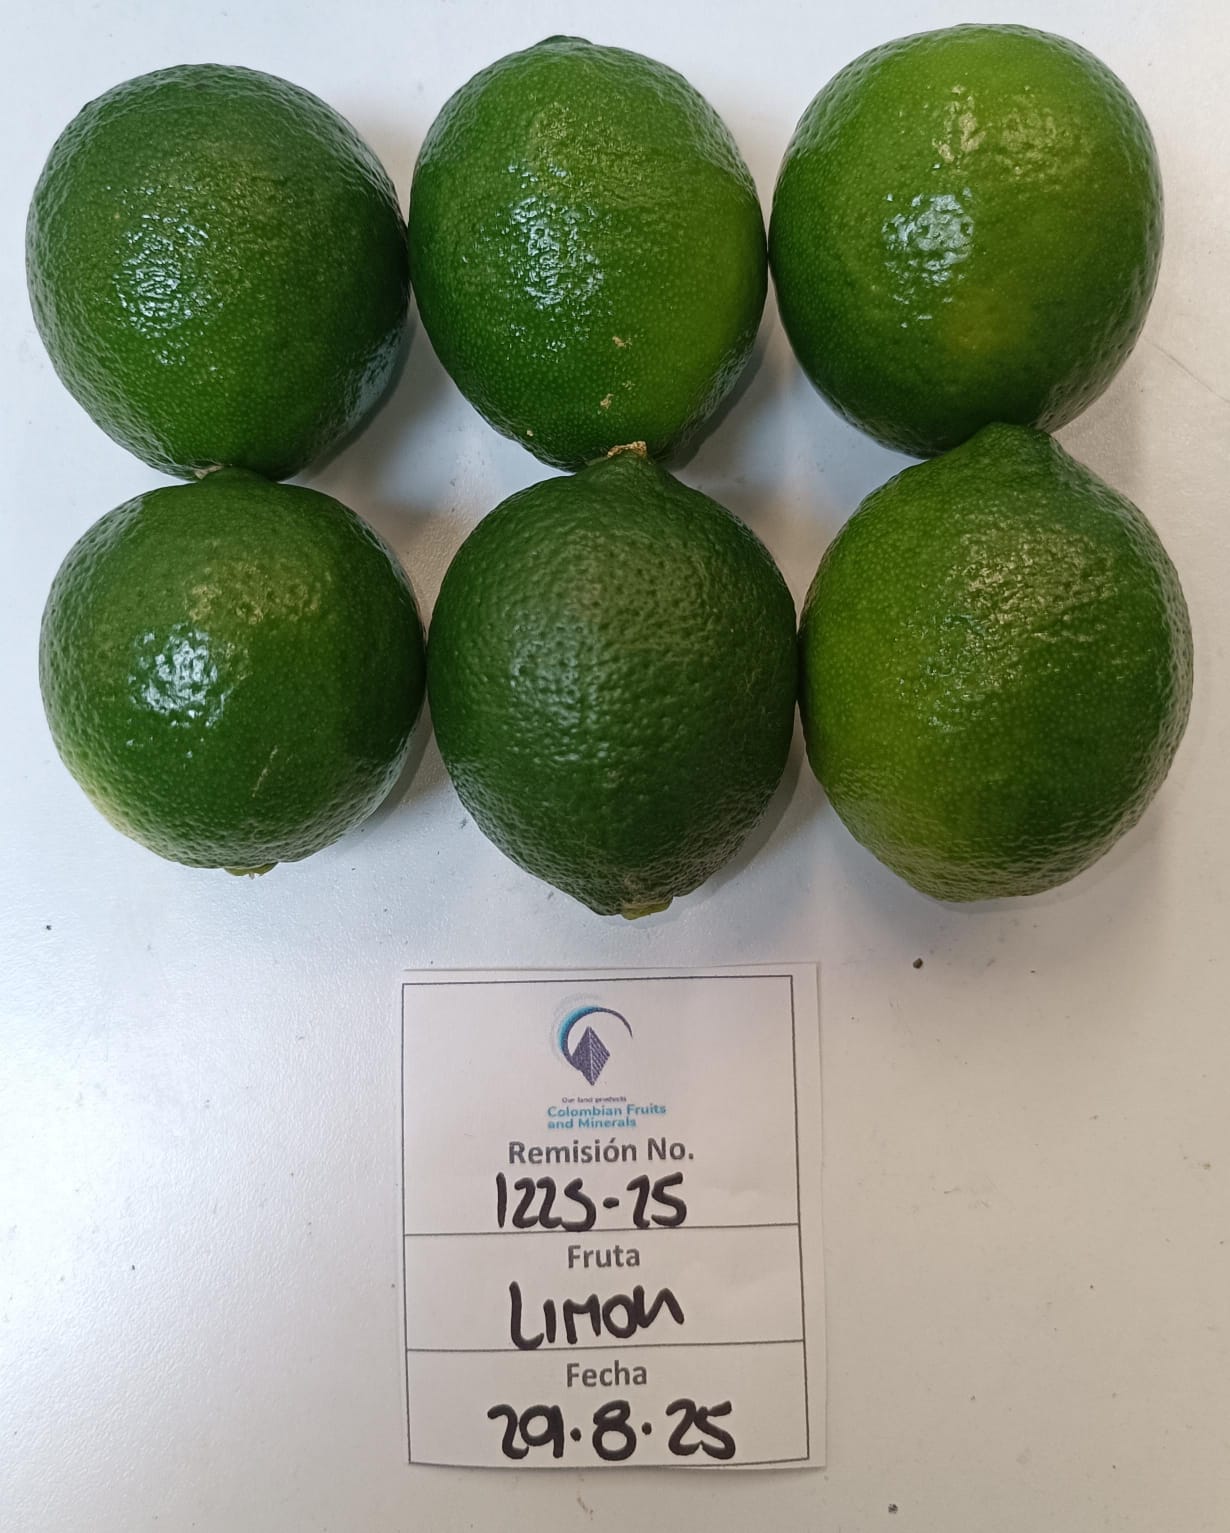 Our land products
Colombian Fruits
and Minerals
Remisión No.
1225-25
Fruta
LIMON
Fecha
29.8.25